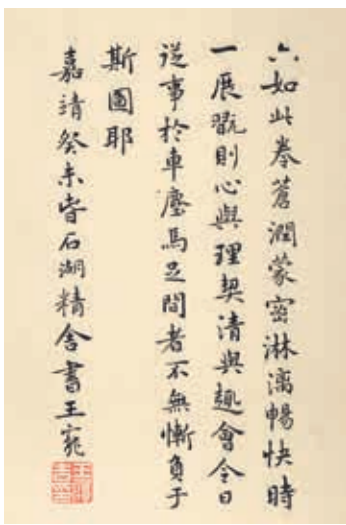 六如此卷蒼潤蒙密淋漓暢快時
一展翫則心與理契清與趣會今日
從事於車塵馬足間者不無慚負于
斯圖耶
嘉靖癸未書石湖精舍書王寵